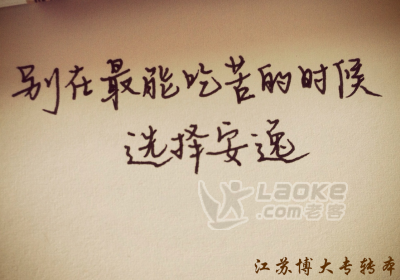 别在最能吃苦的时候
选择安逸
LAOKE
.com老客
江苏博大专转本